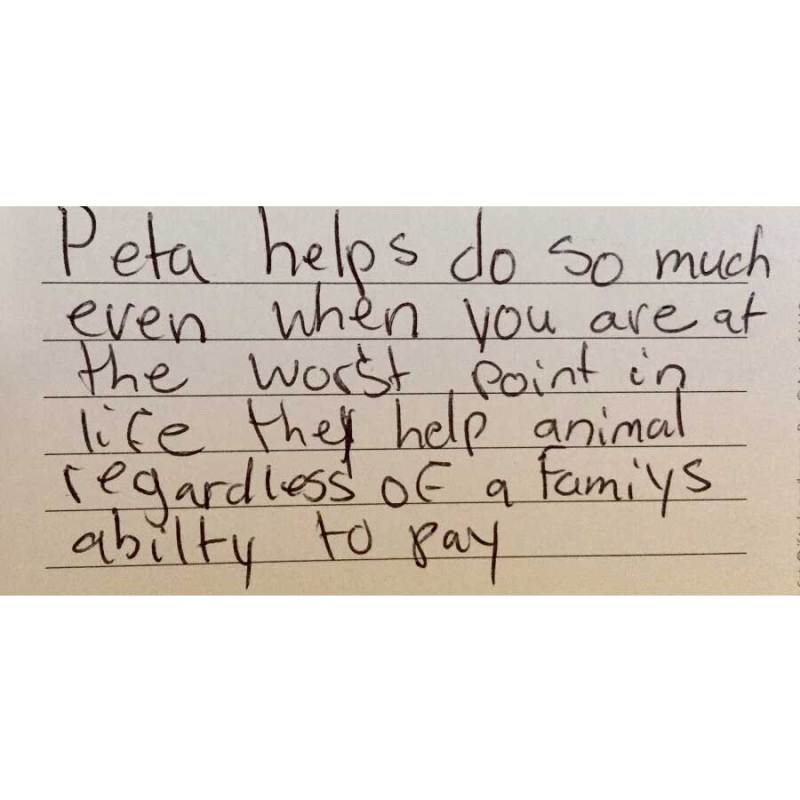 Peta helps do so much
even when you are at
the worst point in
life they help animal
regardless of a famiys
abilty to pay